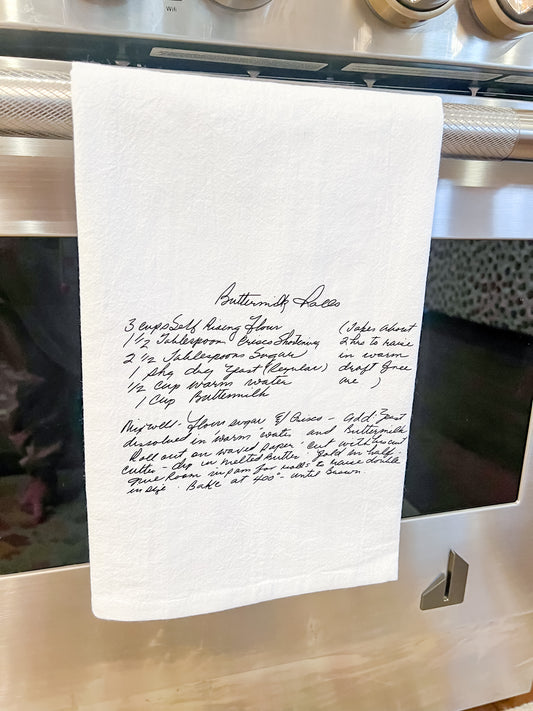 Wifi
Buttermilk Rolls
3 cups Self Rising Flour
1 1/2 Tablespoon Crisco Shortening
2 1/2 Tablespoons Sugar
1 pkg dry yeast (Regular)
1/2 cup warm water
1 cup Buttermilk
(Takes about
2 hrs to raise
in warm
draft free
are )
Mix well - flour sugar & Crisco - add yeast
dissolved in warm water and Buttermilk
Roll out on waxed paper cut with biscuit
cutter - dip in melted Butter. fold in half.
Give Room in pan for rolls to raise double
in size. Bake at 400° - until Brown.